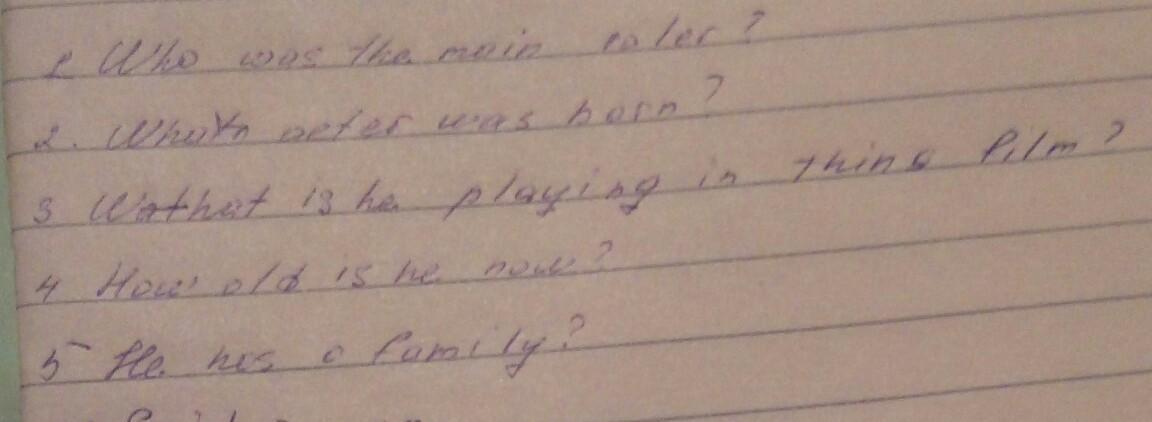 1 Who was the main roler?
2. What's acter was born?
3 Wathat is he playing in thing film?
4 How old is he now?
5 He has a family?